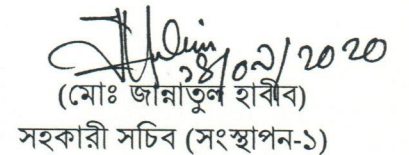 ২৪/০৯/2020
(মোঃ জান্নাতুল হাবীব)
সহকারী সচিব (সংস্থাপন-১)